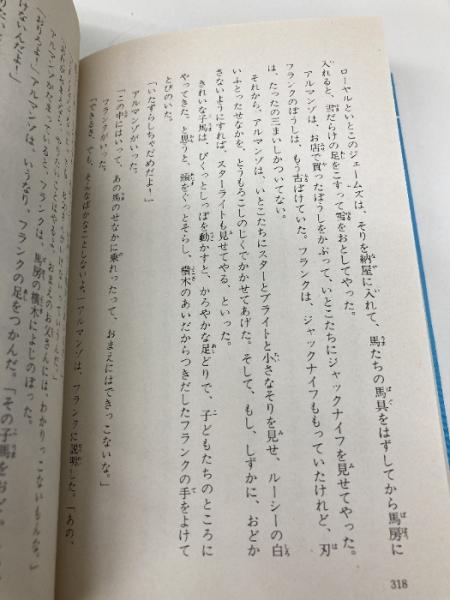 ローヤルといとこのジェームズは、そりを納屋に入れて、馬たちの馬具をはずしてから馬房に
入れると、雪だらけの足をこすって雪をおとしてやった。
アルマンゾは、お店で買ったぼうしをかぶって、いとこたちにジャックナイフを見せてやった。
フランクのぼうしは、もう古ぼけていた。フランクは、ジャックナイフももっていたけれど、刃
は、たったの三まいしかついてない。
それから、アルマンゾは、いとこたちにスターとブライトと小さなそりを見せ、ルーシーの白
いふとったせなかを、とうもろこしのしくでかかせてあげた。そして、もし、しずかに、おどか
さないようにすれば、スターライトも見せてやる、といった。
きれいな子馬は、ぴくっとしっぽを動かすと、かろやかな足どりで、子どもたちのところに
やってきた、と思うと、頭をぐっとそらし、横木のあいだからつきだしたフランクの手をよけて
とびのいた。
「いたずらしちゃだめだよ！」
アルマンゾがいった。
「この中にはいって、あの馬のせなかに乗れったって、おまえにはできっこないな。」
フランクがいった。
「できるさ、でも、そんなばかなことしないよ。」アルマンゾは、フランクに説明した。「あの、
おまえのお父さんには、わかりっこないもんな。」
アルマンゾがだまっていると、フランクは、馬房の横木によじのぼった。
「おりろよ！」アルマンゾは、いうなり、フランクの足をつかんだ。「その子馬をおど
けないんだよ！」
318